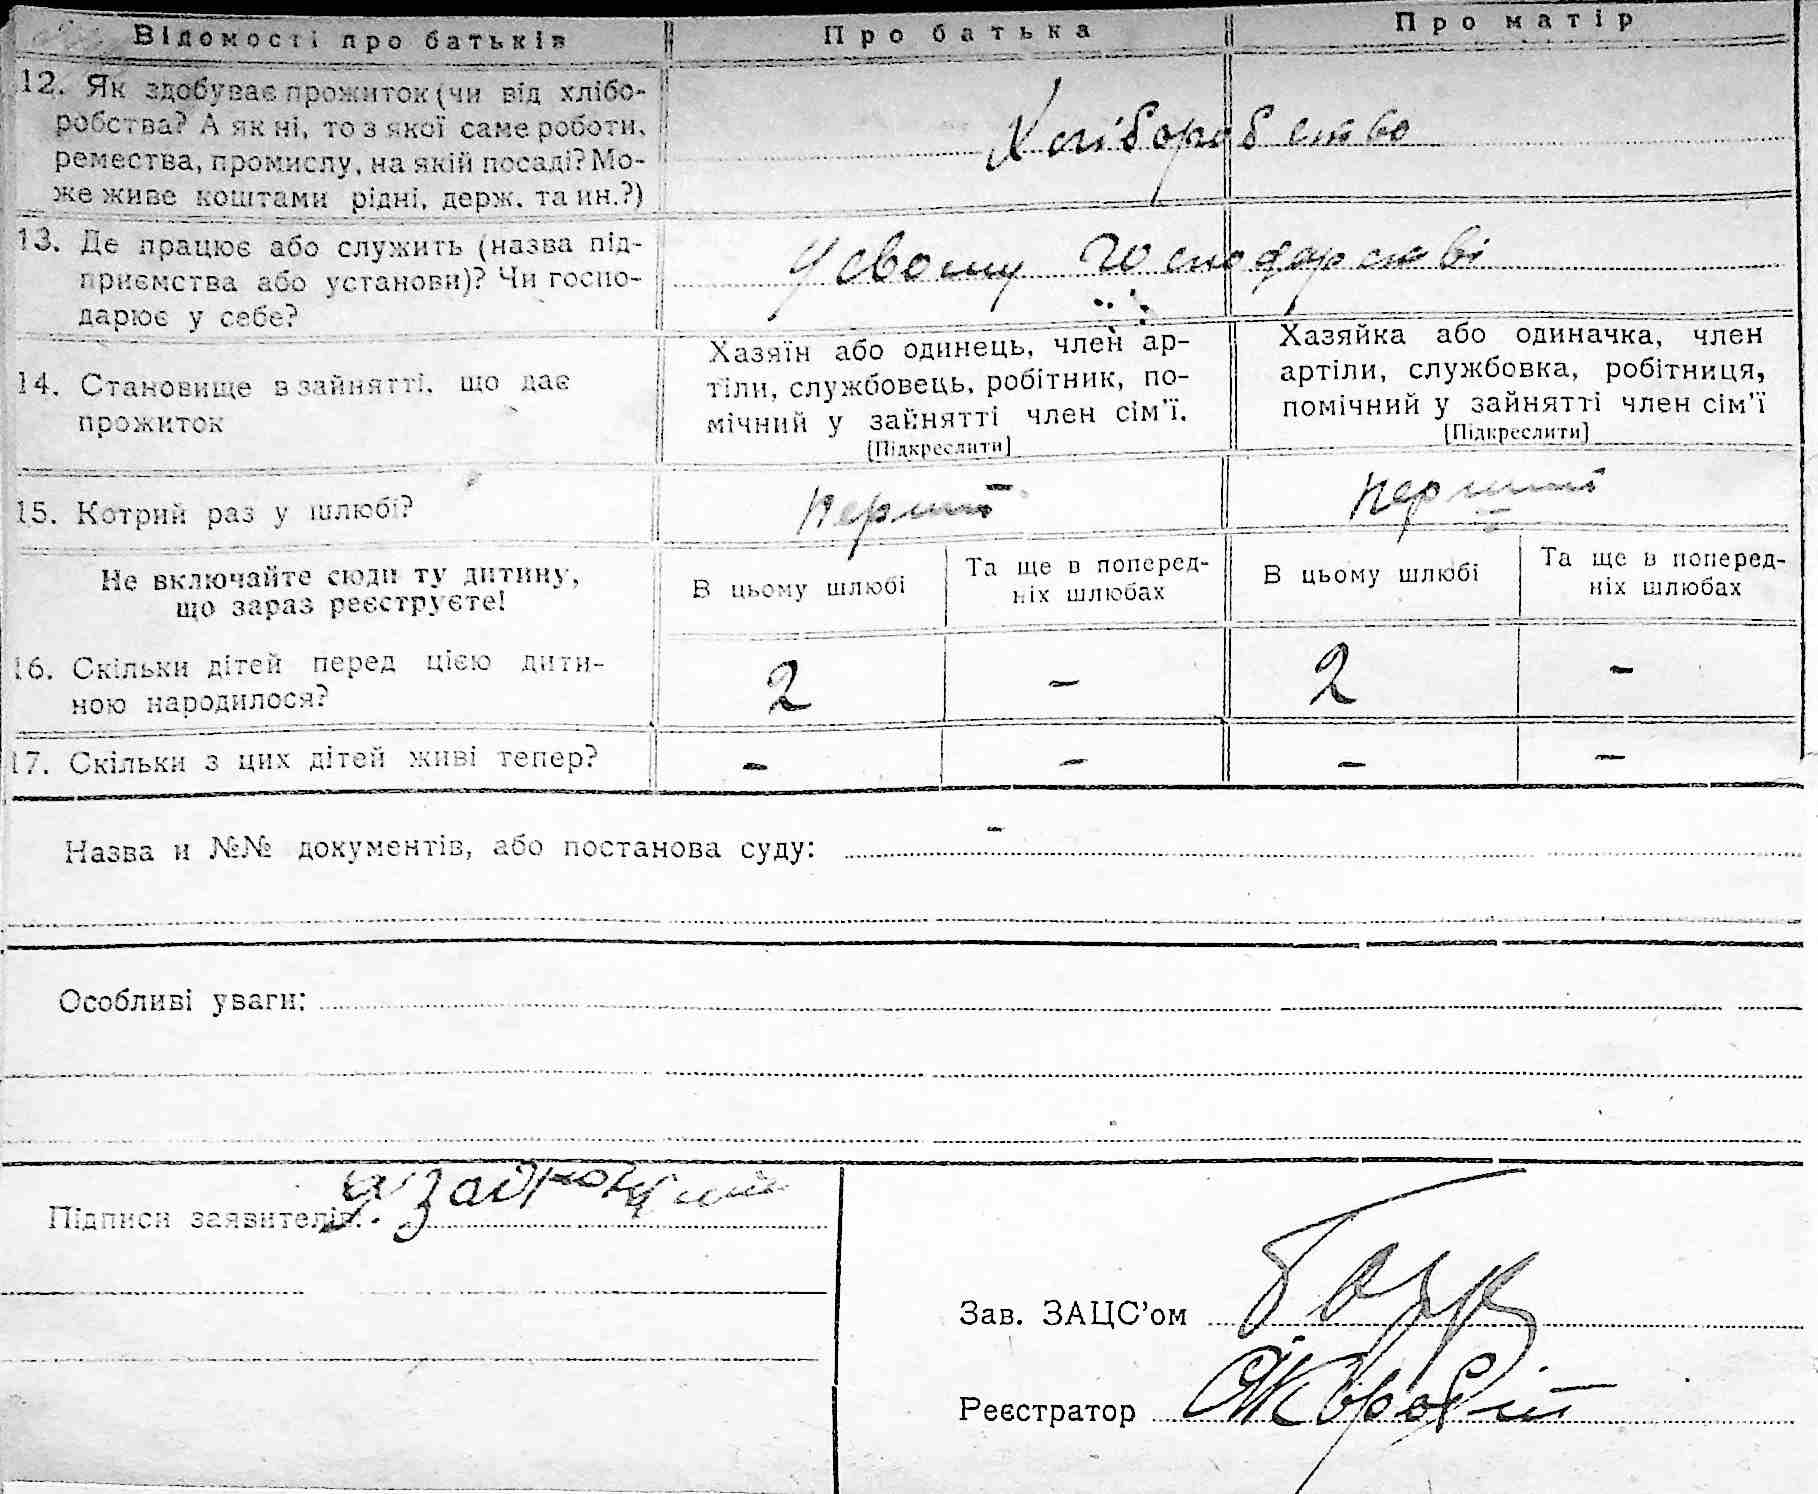 Відомості про батьків Про батька Про матір
12. Як здобуває прожиток (чи від хлібо-
робства? А як ні, то з якої саме роботи,
ремества, промислу, на якій посаді? Мо-
же живе коштами рідні, держ. та ин.?)
Хліборобство
13. Де працює або служить (назва під-
приємства або установи)? Чи госпо-
дарює у себе?
У свому господарстві
14. Становище в зайнятті, що дає
прожиток
Хазяїн або одинець, член ар-
тіли, службовець, робітник, по-
мічний у зайнятті член сім'ї.
[Підкреслити]
Хазяйка або одиначка, член
артіли, службовка, робітниця,
помічний у зайнятті член сім'ї
[Підкреслити]
15. Котрий раз у шлюбі? перший перший
Не включайте сюди ту дитину,
що зараз реєструєте!
В цьому шлюбі
Та ще в поперед-
ніх шлюбах
В цьому шлюбі
Та ще в поперед-
ніх шлюбах
16. Скільки дітей перед цією дити-
ною народилося?
2 - 2 -
17. Скільки з цих дітей живі тепер? - - - -
Назва й №№ документів, або постанова суду: -
Особливі уваги:
Підписи заявителів:
Зав. ЗАЦС'ом
Реєстратор